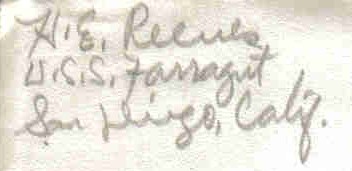 H.E. Reeves
U.S.S. Farragut
San Diego, Calif.